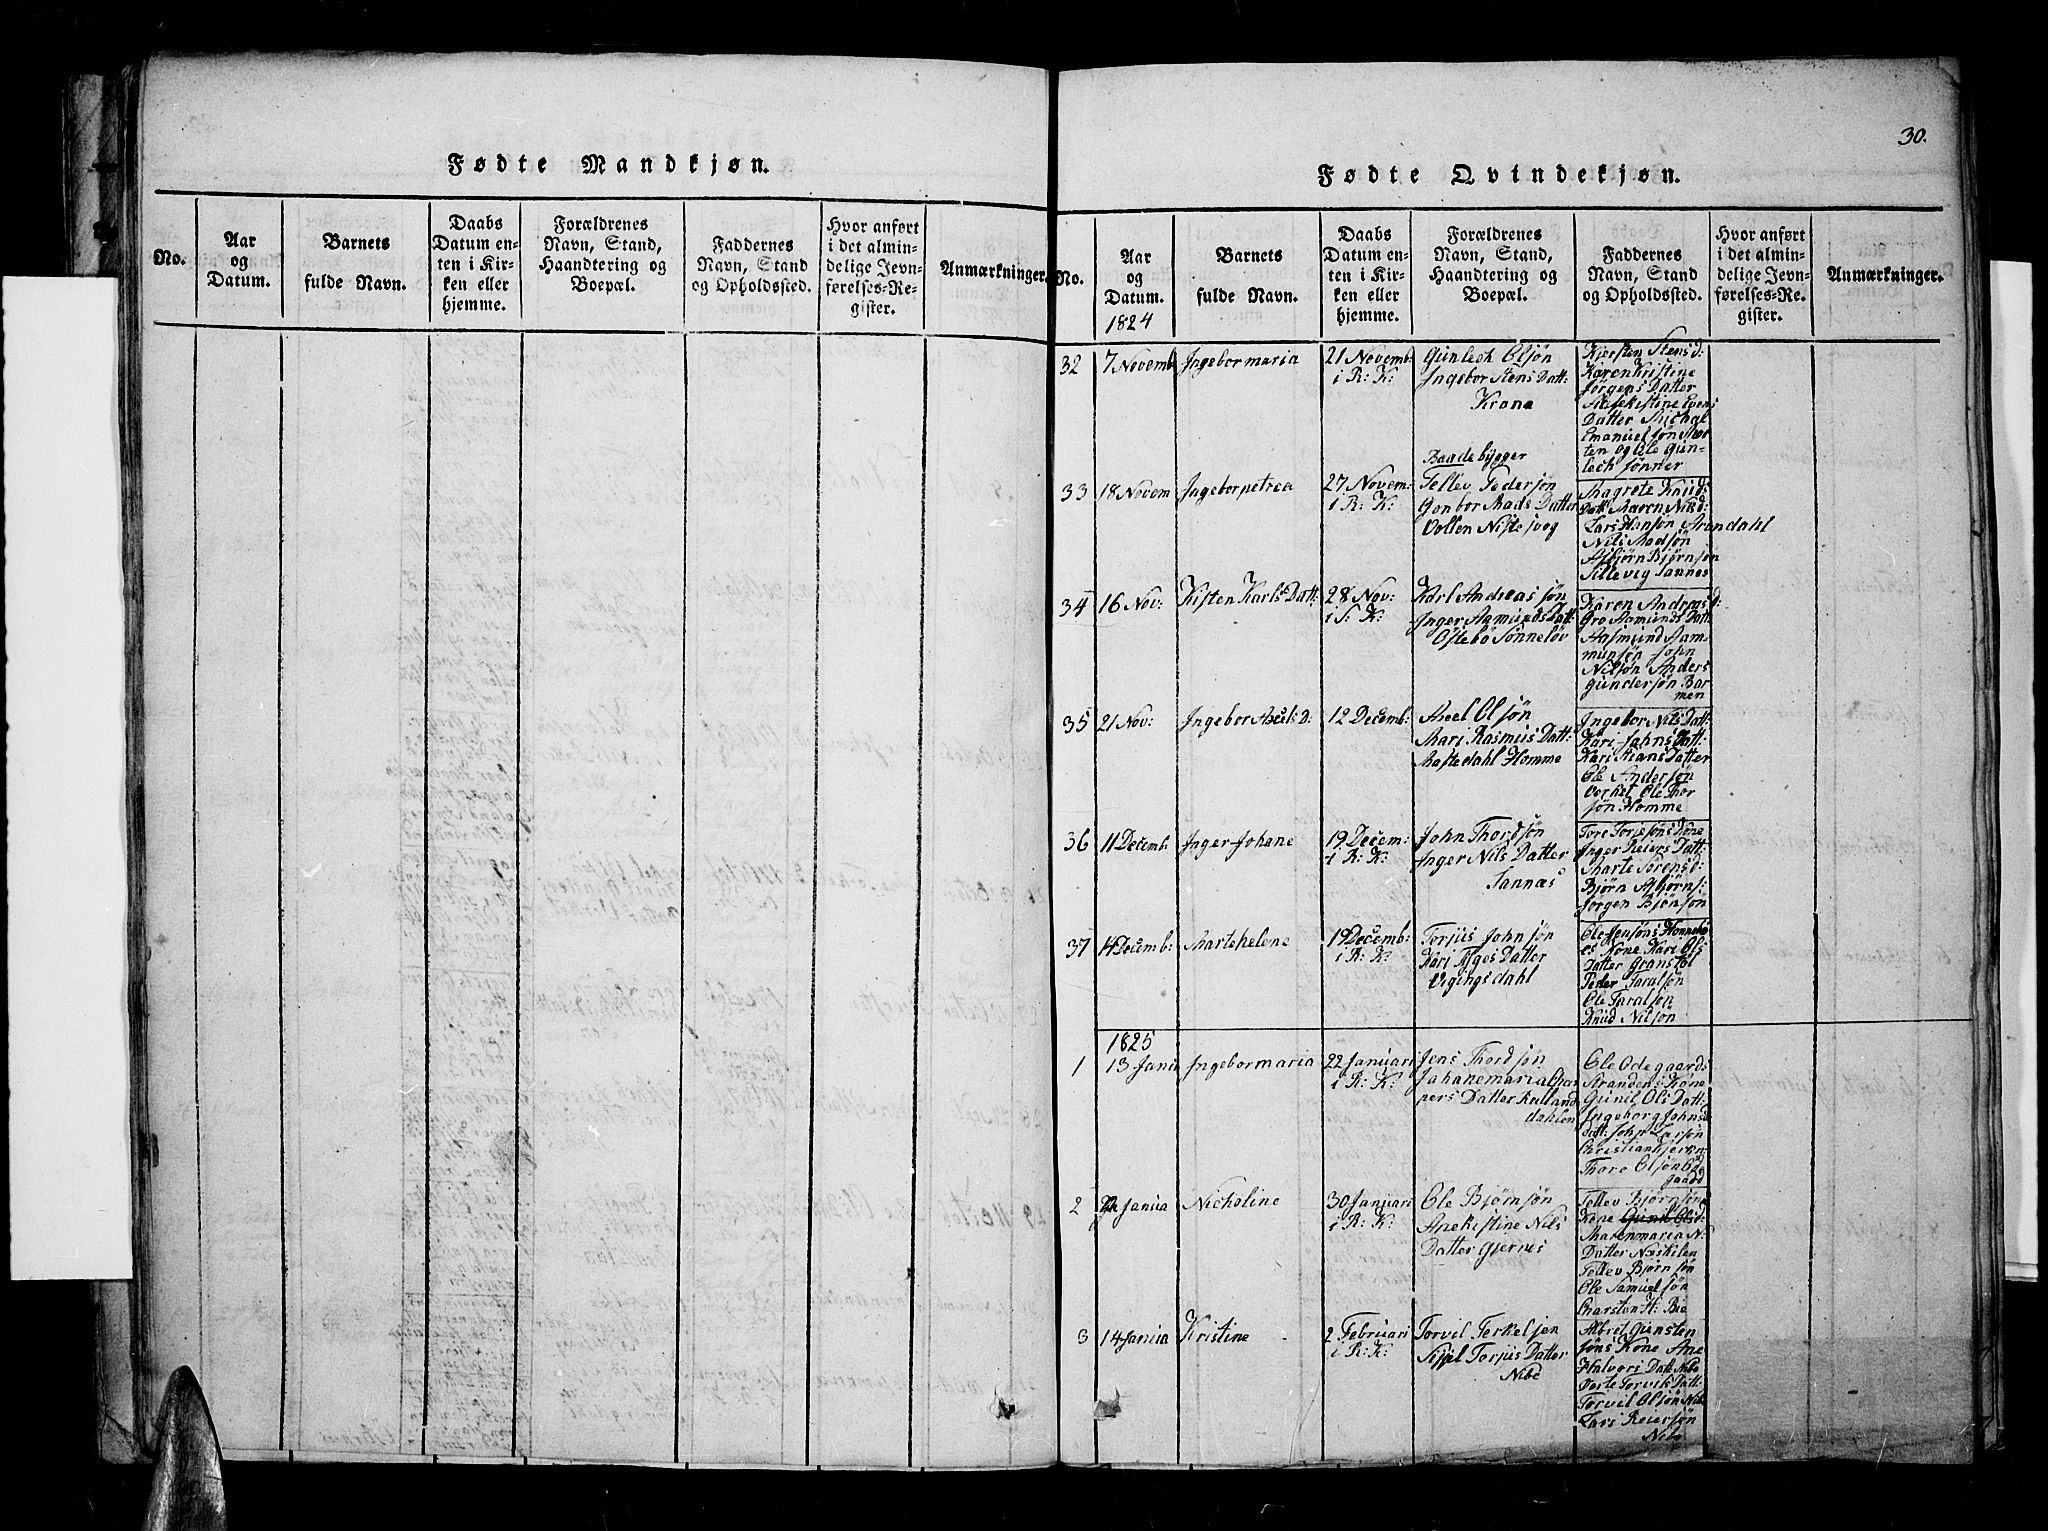 30.
Fødte Mandkjøn.
No.
Aar
og
Datum.
Barnets
fulde Navn.
Daabs
Datum en-
ten i Kir-
ken eller
hjemme.
Forældrenes
Navn, Stand,
Haandtering og
Boepæl.
Faddernes
Navn, Stand
og Opholdssted.
Hvor anført
i det almin-
delige Jevn-
førelses-Re-
gister.
Anmærkninger.
Fødte Qvindekjøn.
No.
Aar
og
Datum.
1824
Barnets
fulde Navn.
Daabs
Datum en-
ten i Kir-
ken eller
hjemme.
Forældrenes
Navn, Stand,
Haandtering og
Boepæl.
Faddernes
Navn, Stand
og Opholdssted.
Hvor anført
i det almin-
delige Jevn-
førelses-Re-
gister.
Anmærkninger.
32
7 Novemb
Ingebor maria
21 Novemb:
i R: K:
Gunlech Olsøn
Ingebor Stens Datt:
Krona
Kjersten Stens d:
Karen Kristine
Jørgens Datter
Datter Michal
Emanuelsøn
ten og Ole Gun-
lech sønner
33
18 Novem
Ingebor petrea
27 Novem:
i R: K:
Baadebygger
Tellev Pedersøn
Gonbor Mads Datter
Magrete Knuds
Datt: Maren Niks d:
Lars Hansøn Arendahl
Nils Madsøn
Asbjørn Bjørnsøn
Sillevig Sannes
34
16 Nov:
Kisten Karls Datt:
28 Nov:
i S: K:
Karl Andreas søn
Inger Aamunds Datt:
Ostebø Sønneløv
Karen Andreas d:
Gro Aamunds Datt
Aasmund Aam
munsøn John
Nilsøn Anders
Gundersøn Bar
men
35
21 Nov:
Ingebor Axels D:
12 Decemb:
Axel Olsøn
Mari Rasmus Datt:
Mastedahl Homme
Ingebor Nils Datt:
Kari Johns Datt:
Kari Mans Datter
Ole Andersøn
Verket Ole Thor
søn Homme
36
11 Decemb
Inger Johane
19 Decem:
i R: K:
John Thordsøn
Inger Nils Datter
Sannæs
Tore Torjesøns Kone
Inger Reiers Datt:
Marte Sørens d:
Bjørn Asbjørns:
Jørgen Bjønsøn
37
4 Decemb:
Marte helene
19 Decemb:
i R: K:
Torjus John søn
Kari Ages Datter
Vigingsdahl
Ole Jensøns Honnebø
es Kone Kari Ols
Datter Granstøl
Peder Taralsøn
Ole Taralsøn
Knud Nilsøn
1825
1
13 Janua
Ingebor maria
22 Januari
i R: K:
Jens Thordsøn
Johane maria Chas
pers Datter Kulland
dahlen
Ole Odegaards
Strandens Kone
Gunil Ols Datt:
Ingeborg Johns
datt: John Larsøn
Thore Olsøn Ød
gaard
2
22 Janua
Nicholine
30 Januari
i R: K:
Ole Bjørnsøn
Ane Kistine Nils
Datter Gjernes
Tellev Bjørnsøns
Kone Gunil Ols d:
Maren maria N:
Datter Næskelen
Tellev Bjørn søn
Ole Samuel søn
Charsten H: Bie
3
14 Janua
Kristine
2 Februari
i R: K:
Torvil Terkelsen
Sissel Torjus Datter
Nibe
Albret Gunsten
søns Kone Ane
Halvors Datt Nibe
Dorte Torvik Datt:
Torvil Olsøn Nibe
Lars Reiersøn
Nibe